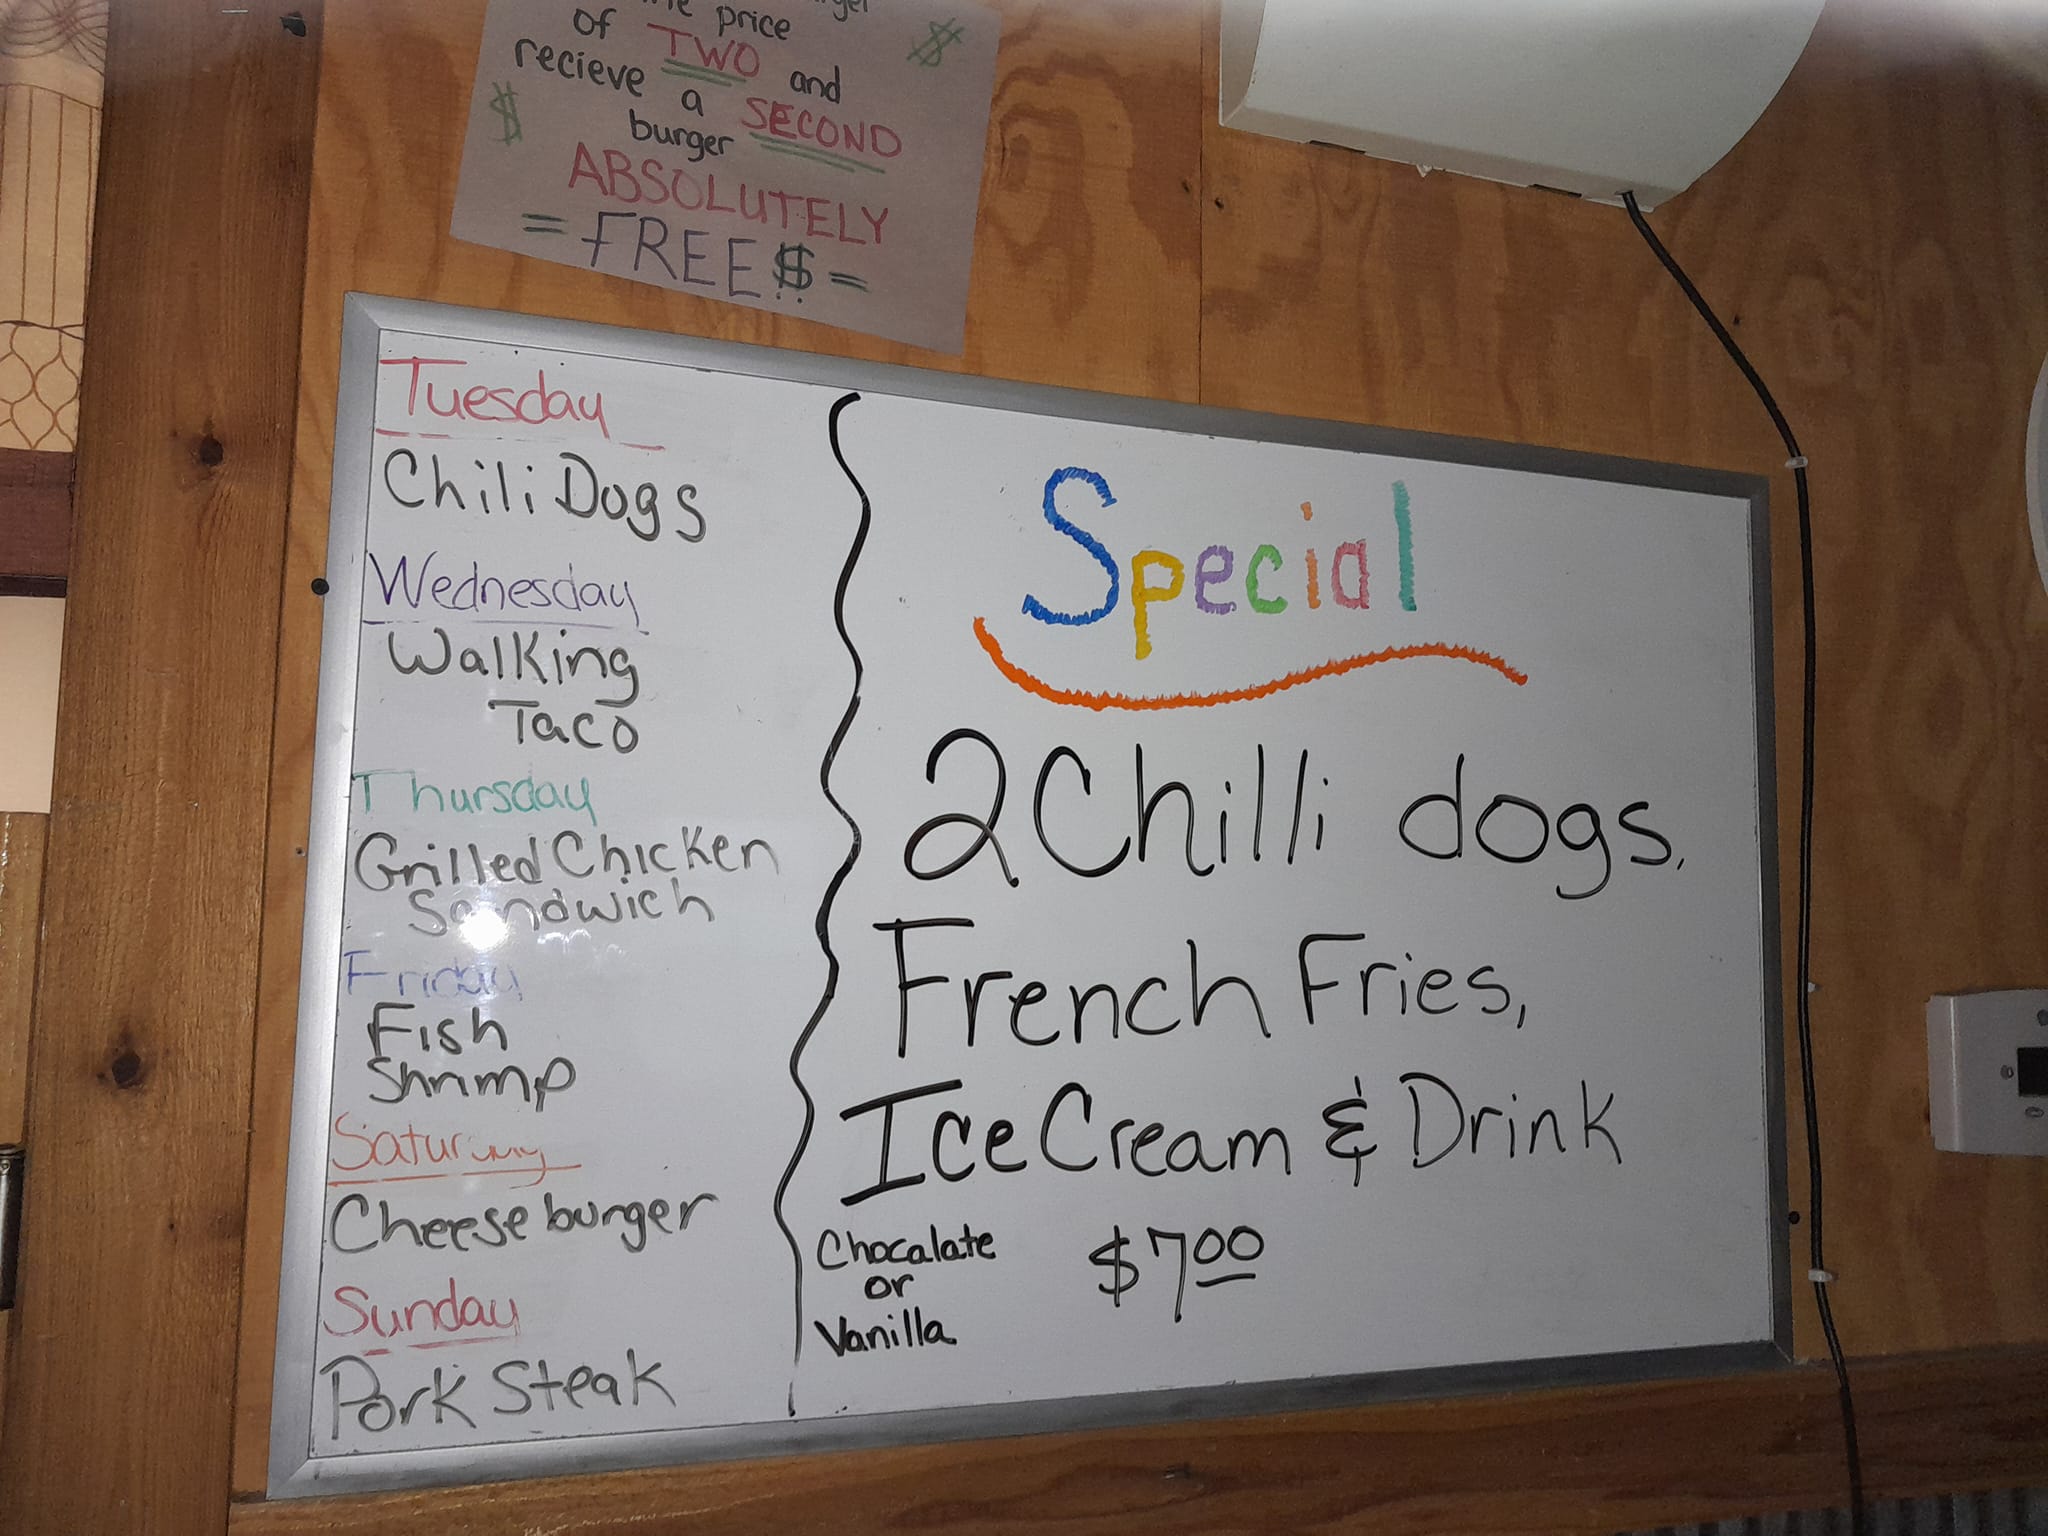 price
of TWO and
recieve a SECOND
burger
ABSOLUTELY
= FREE $ =
Tuesday
Chili Dogs
Wednesday
Walking
Taco
Thursday
Grilled Chicken
Sandwich
Friday
Fish
Shrimp
Saturday
Cheeseburger
Sunday
Pork Steak
Special
2 Chilli dogs,
French Fries,
Ice Cream & Drink
Chocalate
or
Vanilla
$7.00